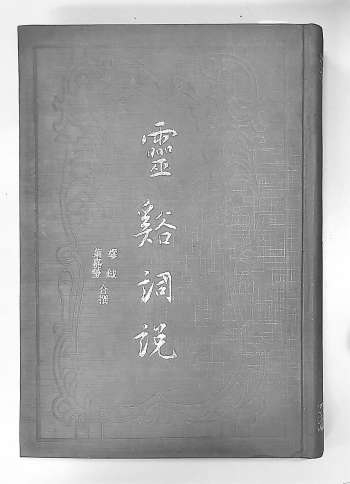 靈谿詞説
繆鉞
葉嘉瑩 合撰